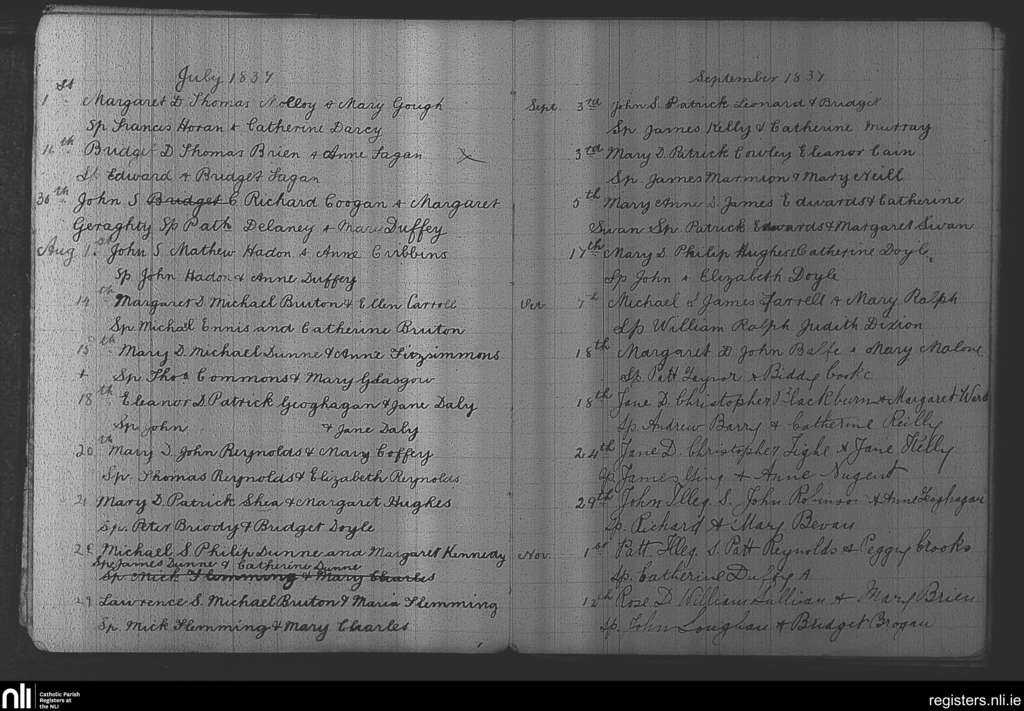 July 1837
1st Margaret D Thomas Nolloy & Mary Gough
Sp Francis Horan & Catherine Darcy
16th Bridget D Thomas Brien & Anne Fagan
Sp Edward & Bridget Fagan
30th John S Bridget C Richard Coogan & Margaret
Geraghty Sp Patk Delaney & Mary Duffey
Aug 1st John S Mathew Hadon & Anne Cribbins
Sp John Hadon & Anne Duffey
14th Margaret D Michael Bruton & Ellen Carroll
Sp. Michael Ennis and Catherine Bruton
15th Mary D. Michael Dunne & Anne Fitzsimmons
& Sp Thos Commons & Mary Glasgow
18th Eleanor D Patrick Geoghagan & Jane Daly
Sp John & Jane Daly
20th Mary D. John Reynolds & Mary Coffey
Sp. Thomas Reynolds & Elizabeth Reynolds
Mary D. Patrick Shea & Margaret Hughes
Sp. Peter Briody & Bridget Doyle
Michael S Philip Dunne and Margaret Kennedy
Sp James Dunne & Catherine Dunne
Sp Mick Flemming & Mary Charles
29 Lawrence S. Michael Bruton & Maria Flemming
Sp. Mick Flemming & Mary Charles
September 1837
Sept. 3rd John S. Patrick Leonard & Bridget
Sp. James Kelly & Catherine Murray
3rd Mary D. Patrick Cowley Eleanor Cain
Sp. James Marmion & Mary Neill
5th Mary Anne D. James Edwards & Catherine
Swan Sp. Patrick Edwards & Margaret Swan
17th Mary S Philip Hughes Catherine Doyle.
Sp John & Elizabeth Doyle
Oct 7th Michael S James Farrell & Mary Ralph
Sp William Ralph Judith Dixion
18th Margaret D. John Balfe & Mary Malone
Sp. Patt Taynor & Biddy Cooke
18th Jane D. Christopher Blackburn & Margaret Ward
Sp. Andrew Barry & Catherine Reilly
24th Jane D. Christopher Tighe & Jane Kelly
Sp James & Anne Nugent
29th John Illeg. S. John Robinson & Anne Geoghagan
Sp. Richard & Mary Bevan
Nov. 1st Patt Illeg. S. Patt Reynolds & Peggy Crooks
Sp. Catherine Duffy A
12th Rose D William Sallivan & Mary Brien
Sp. John Loughlan & Bridget Brogan
nli Catholic Parish
Registers at
the NLI
registers.nli.ie